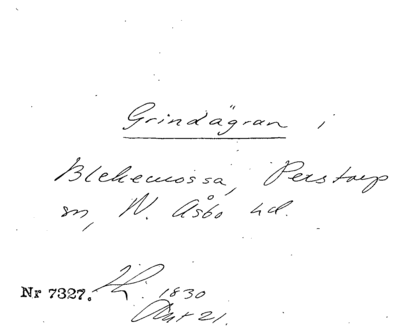 Grindägran i
Blekemossa, Perstorp
sn, N. Åsbo hd.
Nr 7327. 1830
21.